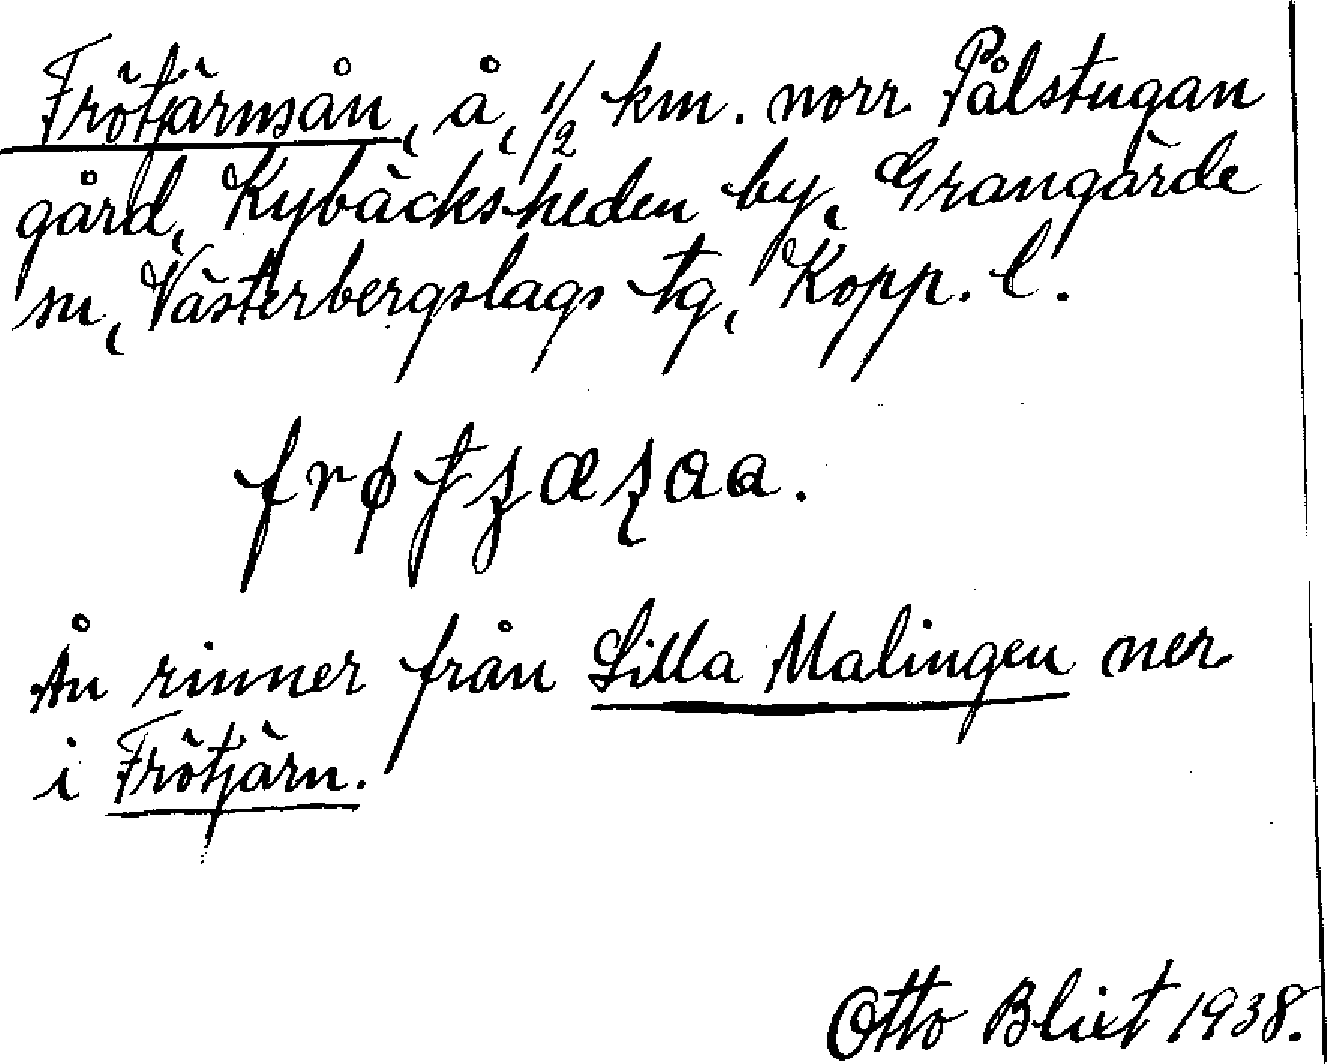 Frötjärnsån, å, 1/2 km. norr Pålstugan
gård, Kybäcksheden by, Grangärde
sn, Västerbergslags tg, Kopp. l.
Ån rinner från Lilla Malingen ner
i Frötjärn.
Otto Blixt 1938.